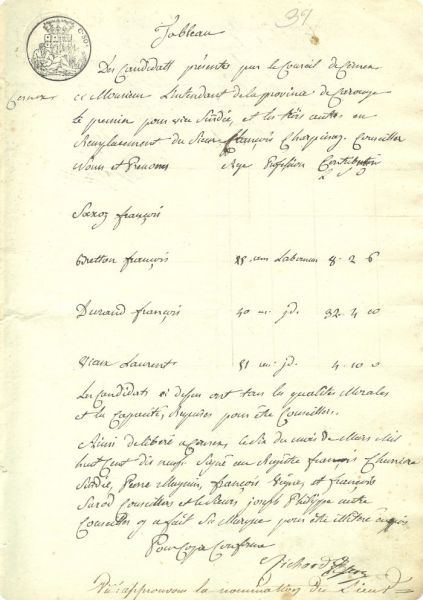 39
Tableau
Des Candidats présentés par le Conseil de
a Monsieur L'intendant de la province de Carouge
le premier pour être Sindic, et les trois autres en
Remplacement du Sieur françois Charpinaz Conseiller
Noms et Prenoms Age Profession Contribution
françois
Bretton françois ans Laboureur 8 - 2 6
Durand françois 40 id. 32 - 4
Vieux Laurent 51 id. 4 - 10 0
Les Candidats ci dessus ont tous les qualités Morales
et la Capacité, Requises pour être Conseillers.
Ainsi délibéré a le Six du mois de Mars Mil
huit Cent dix neuf Signé au Régistre françois
Sindic, Pierre françois et françois
Conseillers et le Sieur joseph Philippe autre
Conseiller y a fait Sa Marque pour être illitéré
Pour Copie Conforme
Richard
Vû: approuvons la nomination du Sieur